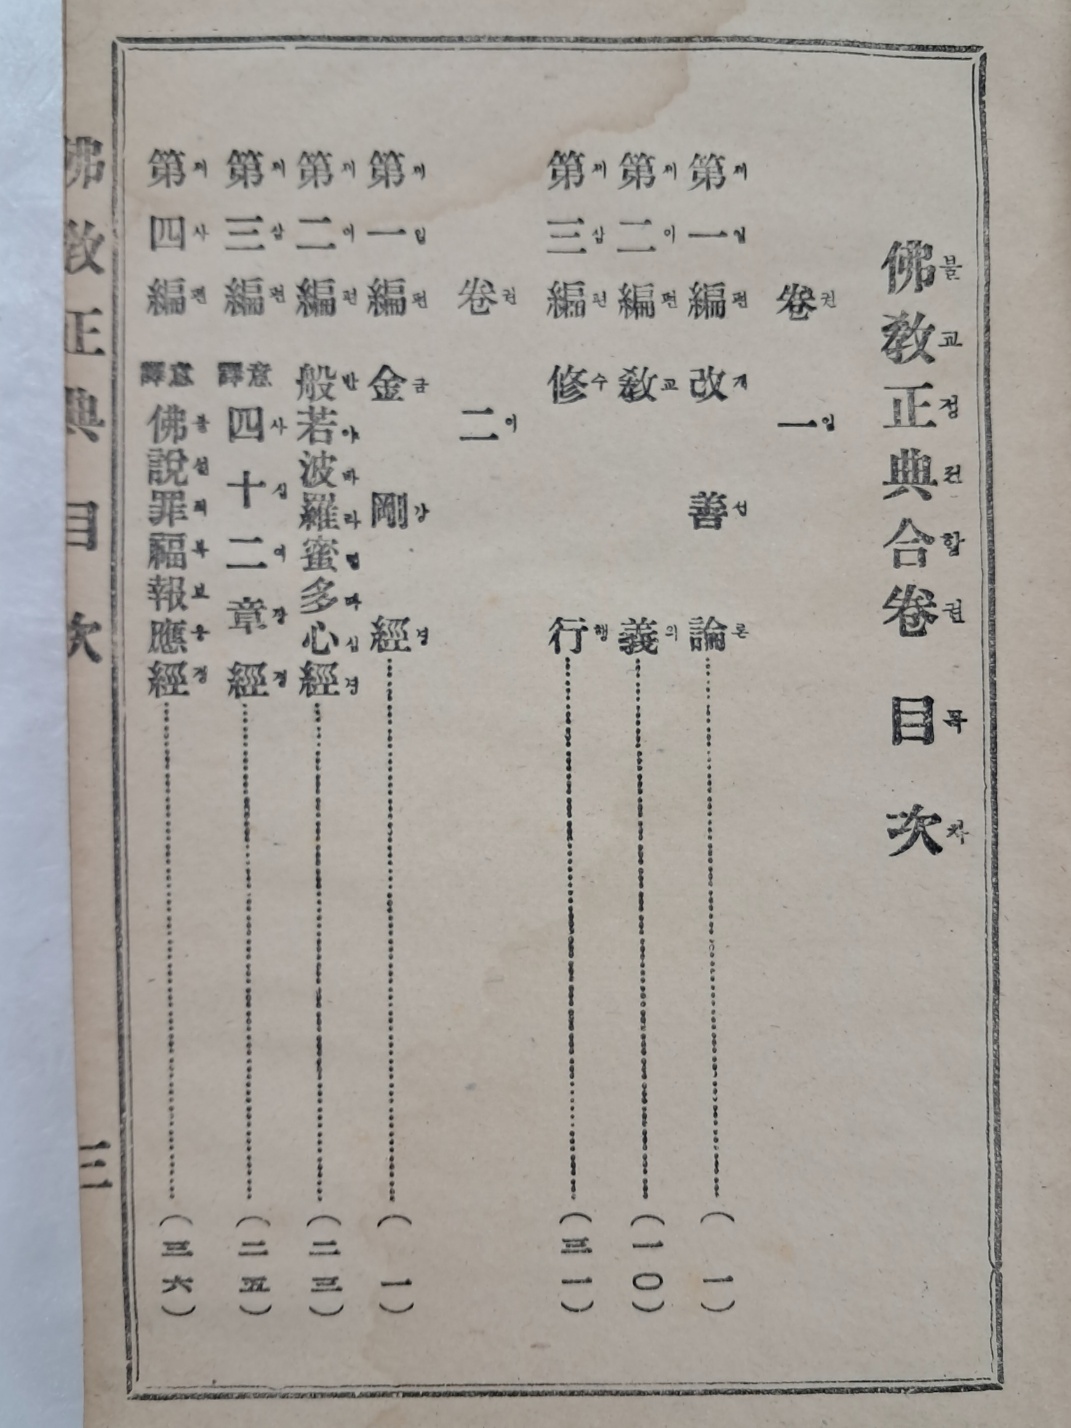 佛불敎교正정典전合합卷권 目목次차
卷권 一일
第제一일編편 改개善선論론……(一)
第제二이編편 敎교義의……(一〇)
第제三삼編편 修수行행……(三一)
卷권 二이
第제一일編편 金금剛강經경……(一)
第제二이編편 般반若야波바羅라蜜밀多다心심經경……(二三)
第제三삼編편 意譯 四사十십二이章장經경……(二五)
第제四사編편 意譯 佛불說설罪죄福복報보應응經경……(三六)
佛敎正典 目次 三